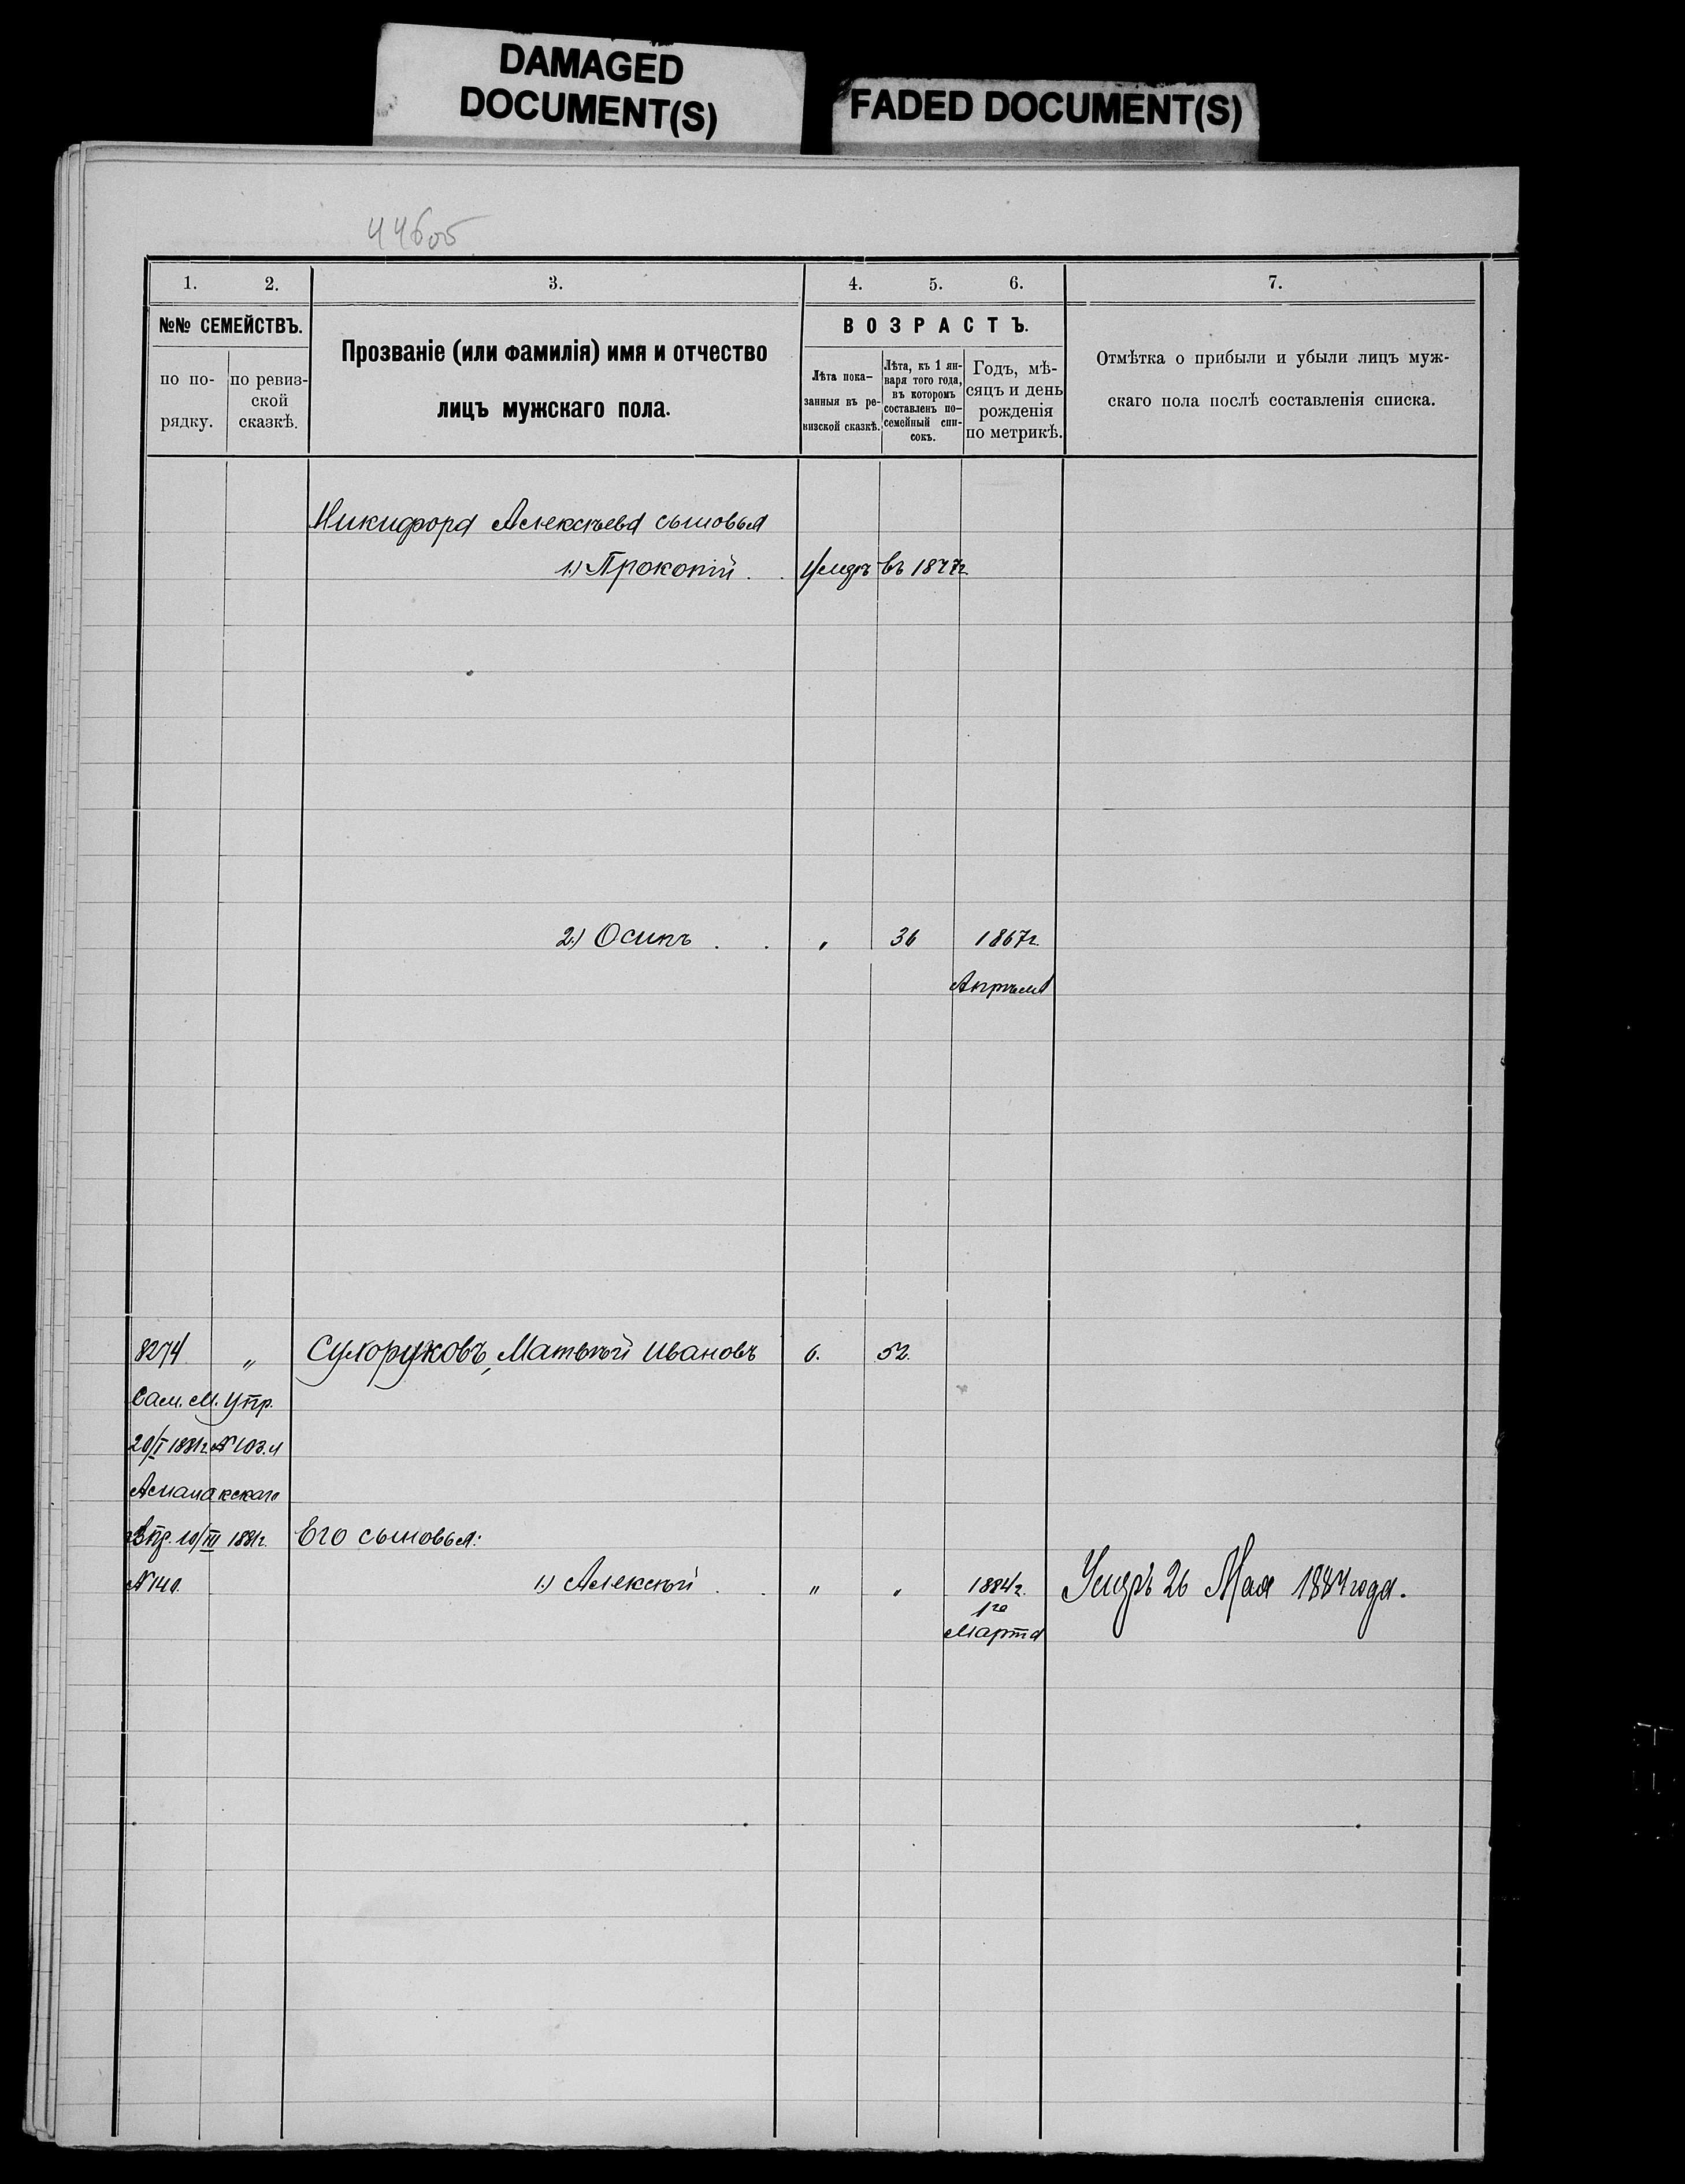 DAMAGED
DOCUMENT(S)
FADED DOCUMENT(S)
1. 2. 3. 4. 5. 6. 7.
№№ СЕМЕЙСТВЪ.
по по-
рядку.
по ревиз-
ской
сказкѣ.
Прозваніе (или фамилія) имя и отчество
лицъ мужскаго пола.
ВОЗРАСТЪ.
Лѣта пока-
занныя въ ре-
визской сказкѣ.
Лѣта, къ 1 ян-
варя того года,
въ которомъ
составленъ по-
семейный спи-
сокъ.
Годъ, мѣ-
сяцъ и день
рожденія
по метрикѣ.
Отмѣтка о прибыли и убыли лицъ муж-
скаго пола послѣ составленія списка.
Никифора Алексѣева сыновья
1.) Прокопій . . Умеръ въ 1877г.
2.) Осипъ . . " 36 1867г.
Апрѣля
8274 " Сухоруковъ, Матвѣй Ивановъ 6. 52.
Сам. М. Упр.
20/I 1881г. №
Упр. 10/III 1881г. Его сыновья:
№ 140. 1.) Алексѣй . . " " 1884г. Умеръ 26 Мая 1884 года.
1го
Марта